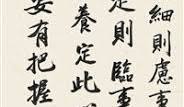 細則慮事
定則臨事
養定此
安有把握